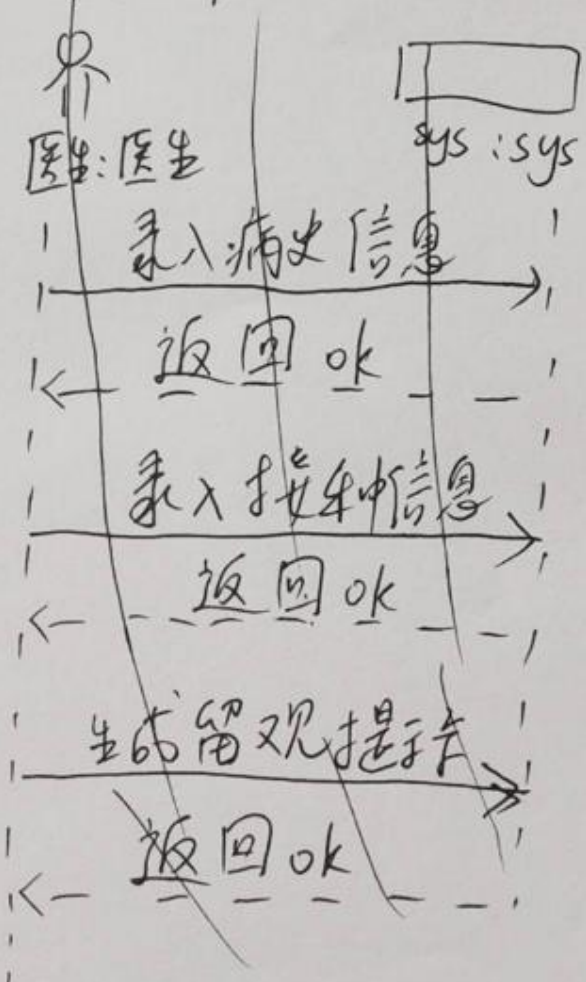 医生:医生
sys:sys
录入病史信息
返回ok
录入接种信息
返回ok
生成留观提示
返回ok